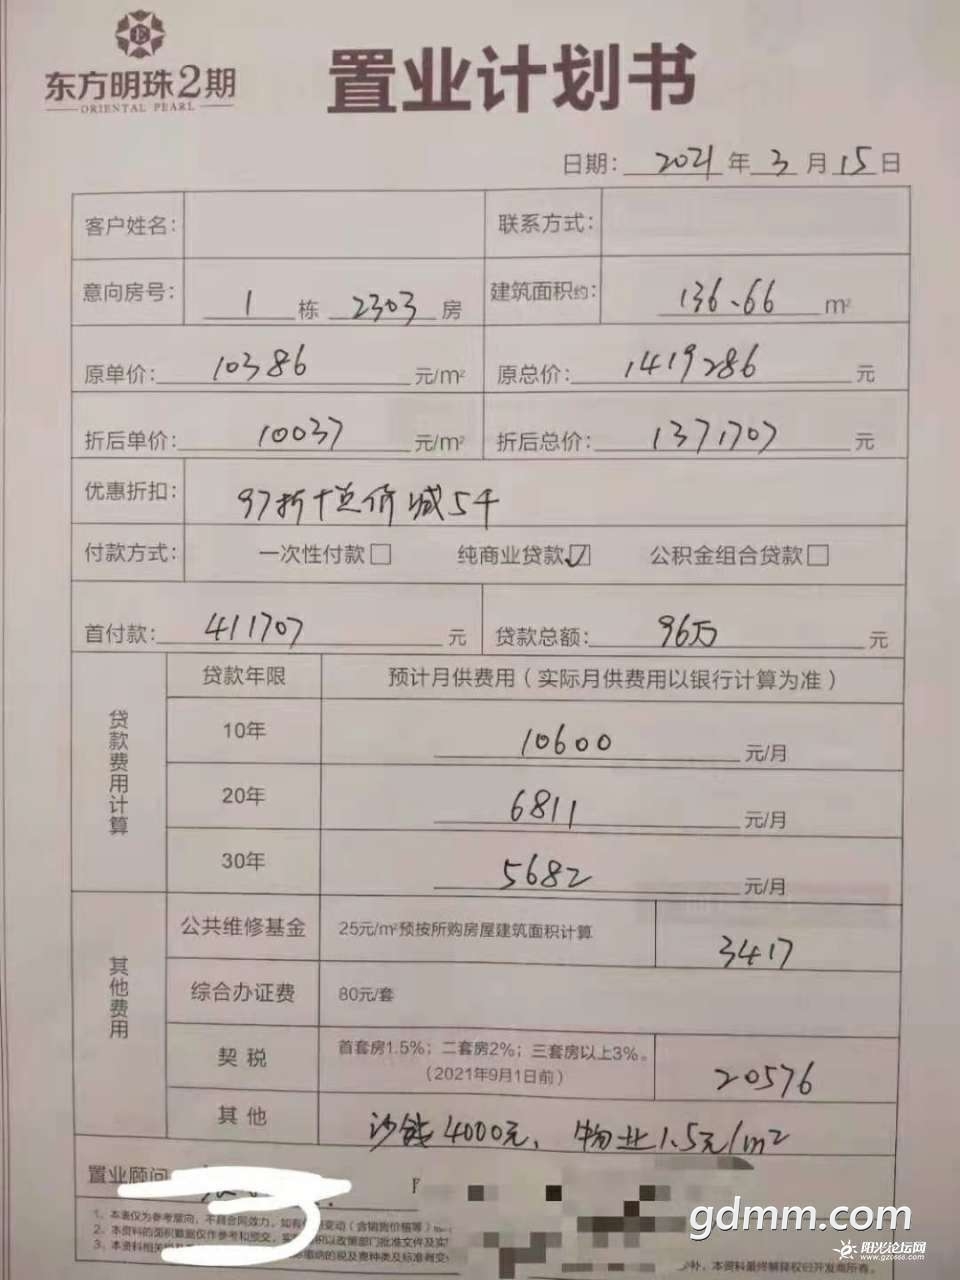 东方明珠2期
ORIENTAL PEARL
置业计划书
日期: 2021 年 3 月 15 日
客户姓名: 联系方式:
意向房号: 1 栋 2303 房 建筑面积约: 136.66 m²
原单价: 10386 元/m² 原总价: 1419286 元
折后单价: 10037 元/m² 折后总价: 1371707 元
优惠折扣: 97折+总价减5千
付款方式: 一次性付款□ 纯商业贷款☑ 公积金组合贷款□
首付款: 411707 元 贷款总额: 96万 元
贷款费用计算
贷款年限 预计月供费用(实际月供费用以银行计算为准)
10年 10600 元/月
20年 6811 元/月
30年 5682 元/月
其他费用
公共维修基金 25元/m²预按所购房屋建筑面积计算 3417
综合办证费 80元/套
契税 首套房1.5%; 二套房2%; 三套房以上3%。
(2021年9月1日前) 20576
其他 4000元、物业1.5元/m²
置业顾问
1、本表仅为参考意向，不具合同效力，如有 变动(含销售价格等)
2、本资料的面积数据仅作参考和预交，实 积以政策部门批准文件及实
3、本资料相关 缴纳的税及费种类及标准有变
补，本资料最终解释权归开发商所有。
gdmm.com
阳光论坛网
www.gzcsss.com